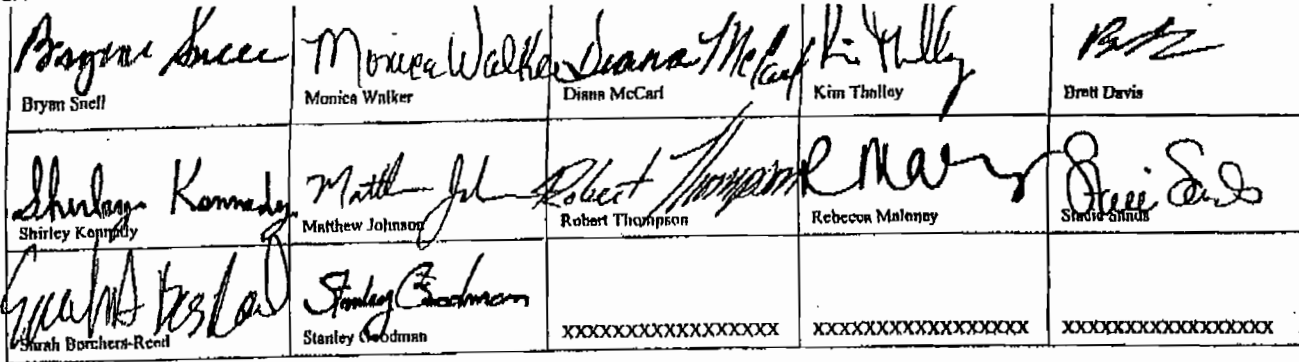 Bryan Snell Monica Walker Diana McCarl
Bryan Snell Monica Walker Diana McCarl Kim Thalley Brett Davis
Shirley Kennedy Matthew Johnson Robert Thompson R Maloney Stacie Sands
Shirley Kennedy Matthew Johnson Robert Thompson Rebecca Maloney Stacie Sands
Stanley Goodman
Sarah Borchers-Reed Stanley Goodman XXXXXXXXXXXXXXXXX XXXXXXXXXXXXXXXXX XXXXXXXXXXXXXXXXX